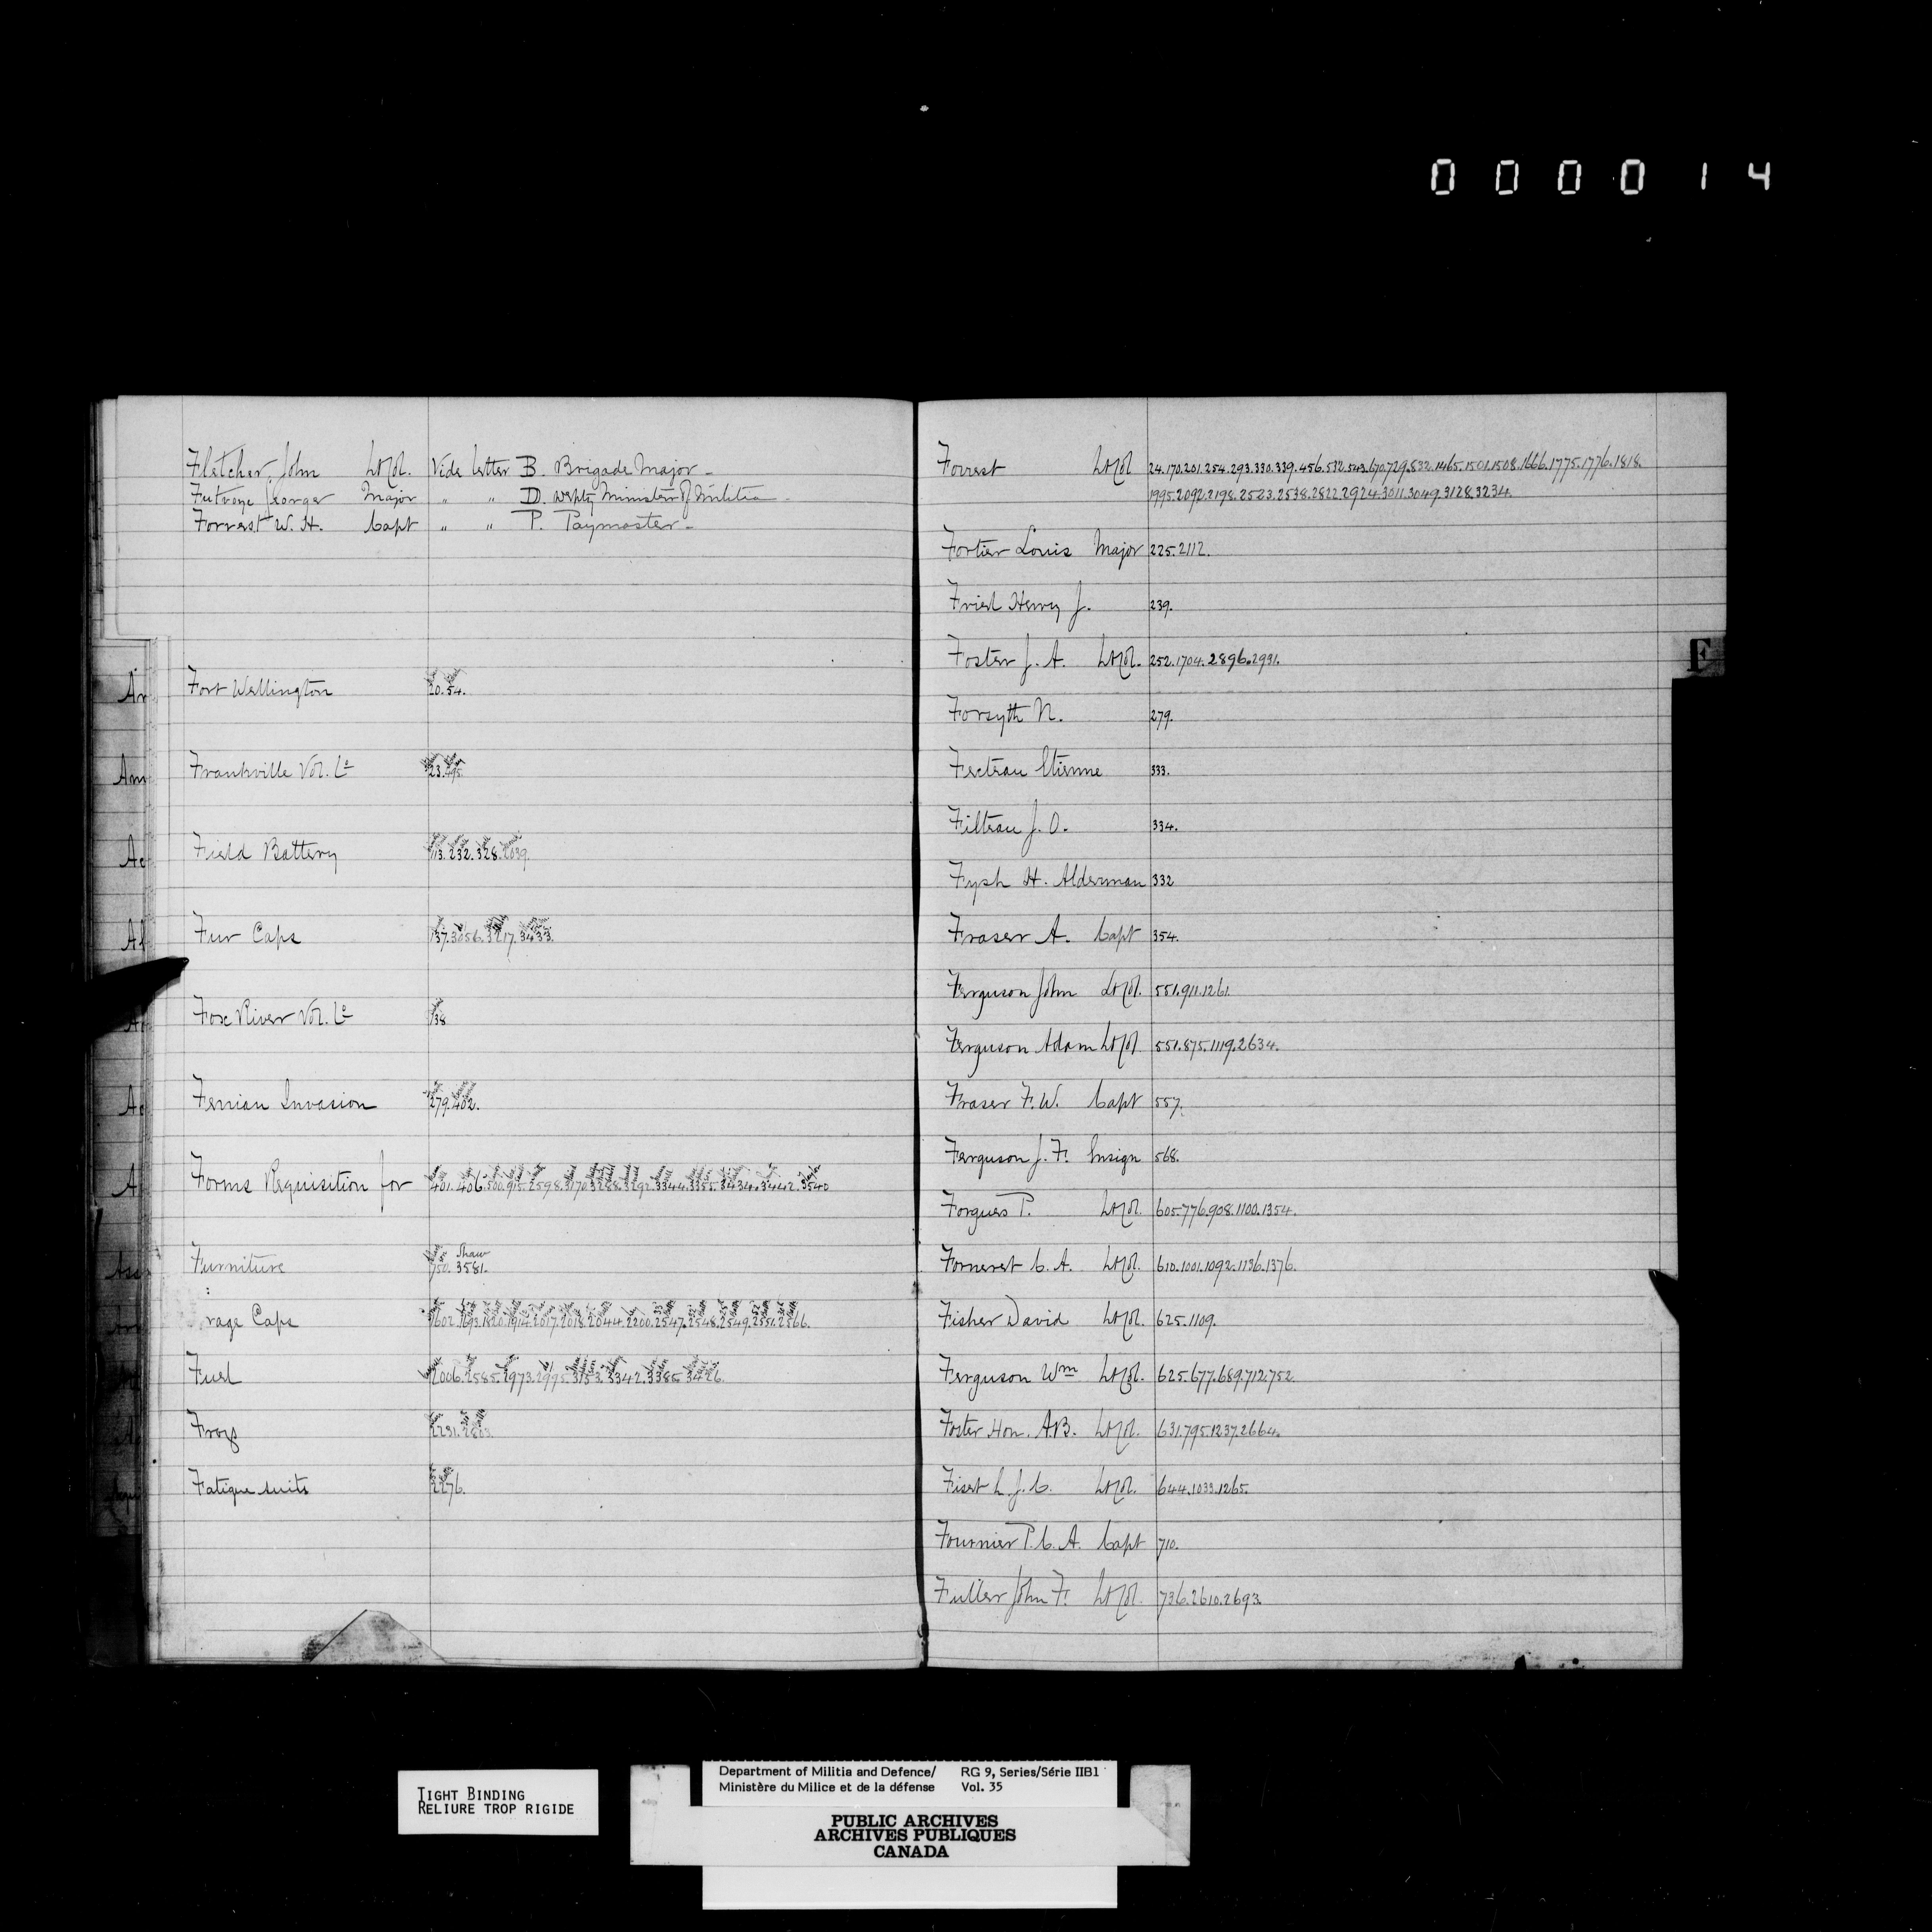 000014
Fletcher, John Lt Col. Vide letter B. Brigade Major -
Futvoye George Major " " D. Depty Minister of Militia -
Forrest W. H. Capt " " P. Paymaster -
Fort Wellington 20.54.
Frankville Vol. Co 23.495.
Field Battery 113.232.328.2039.
Fur Caps 137.3056.3217.3433.
Fox River Vol. Co 138
Fenian Invasion 279.402.
Forms Requisition for 401.406.500.915.2598.3170.3288.3292.3344.3355.3434.3442.3540
Shaw
Furniture 750. 3581.
rage Caps 1602.1693.1820.1914.2017.2018.2044.2200.2547.2548.2549.2551.2566.
Fuel 2006.2585.2973.2995.3153.3342.3385.3426.
Frogs 2231.2803.
Fatigue suits 2276.
Forrest Lt Col 24.170.201.254.293.330.339.456.532.543.670.729.832.1465.1501.1508.1666.1775.1776.1818.
1995.2092.2198.2523.2538.2822.2924.3011.3049.3128.3234.
Fortier Louis Major 225.2112.
Friel Henry J. 239.
Foster J. A. Lt Col. 252.1704.2896.2931.
Forsyth N. 279.
Fecteau Etienne 333.
Filteau J. O. 334.
Fysh H. Alderman 332
Fraser A. Capt 354.
Ferguson John Lt Col. 551.911.1261.
Ferguson Adam Lt Col 551.875.1119.2634.
Fraser F. W. Capt 557.
Ferguson J. F. Ensign 568.
Forgues T. Lt Col. 605.776.908.1100.1354.
Forneret C. A. Lt Col. 610.1001.1092.1136.1376.
Fisher David Lt Col. 625.1109.
Ferguson Wm Lt Col. 625.677.689.712.752.
Foster Hon. A.B. Lt Col. 631.795.1237.2664.
Fiset L. J. C. Lt Col. 644.1033.1265.
Fournier P. C. A. Capt 710.
Fuller John F. Lt Col. 736.2610.2693.
F
Ar
Am
Ac
TIGHT BINDING
RELIURE TROP RIGIDE
Department of Militia and Defence/ RG 9, Series/Série IIB1
Ministère du Milice et de la défense Vol. 35
PUBLIC ARCHIVES
ARCHIVES PUBLIQUES
CANADA